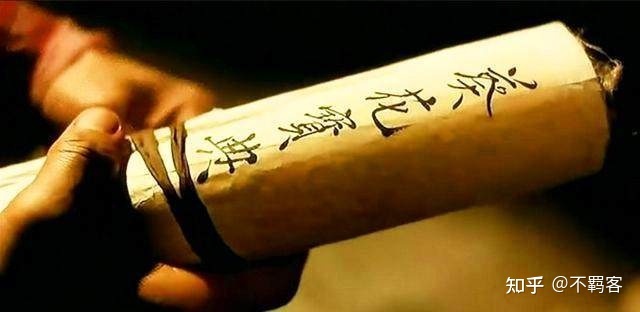 葵花寶典
知乎 @不羁客